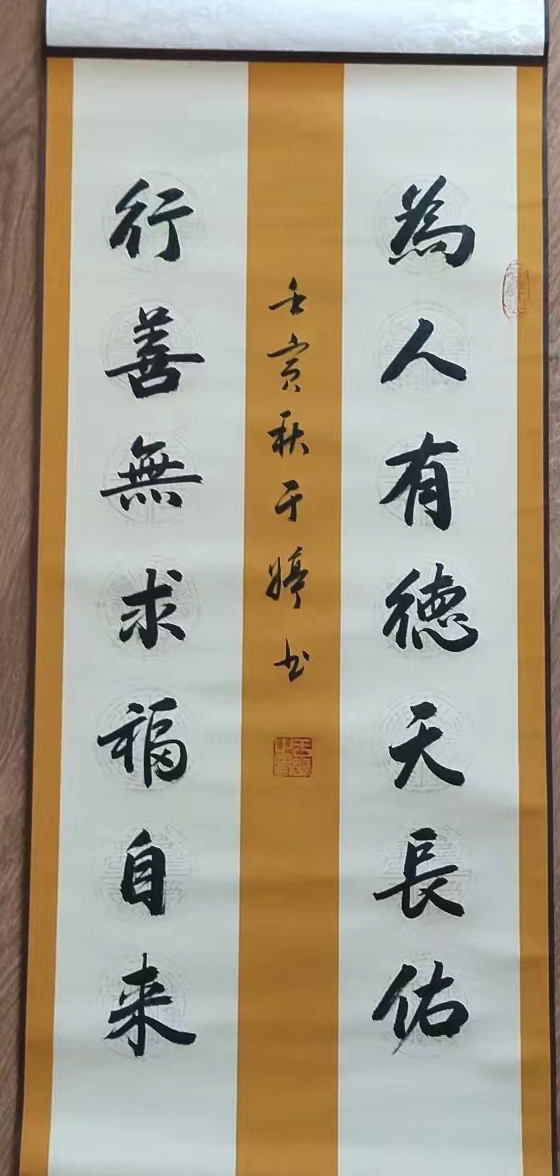 為人有德天長佑
行善無求福自来
壬寅秋于婷书